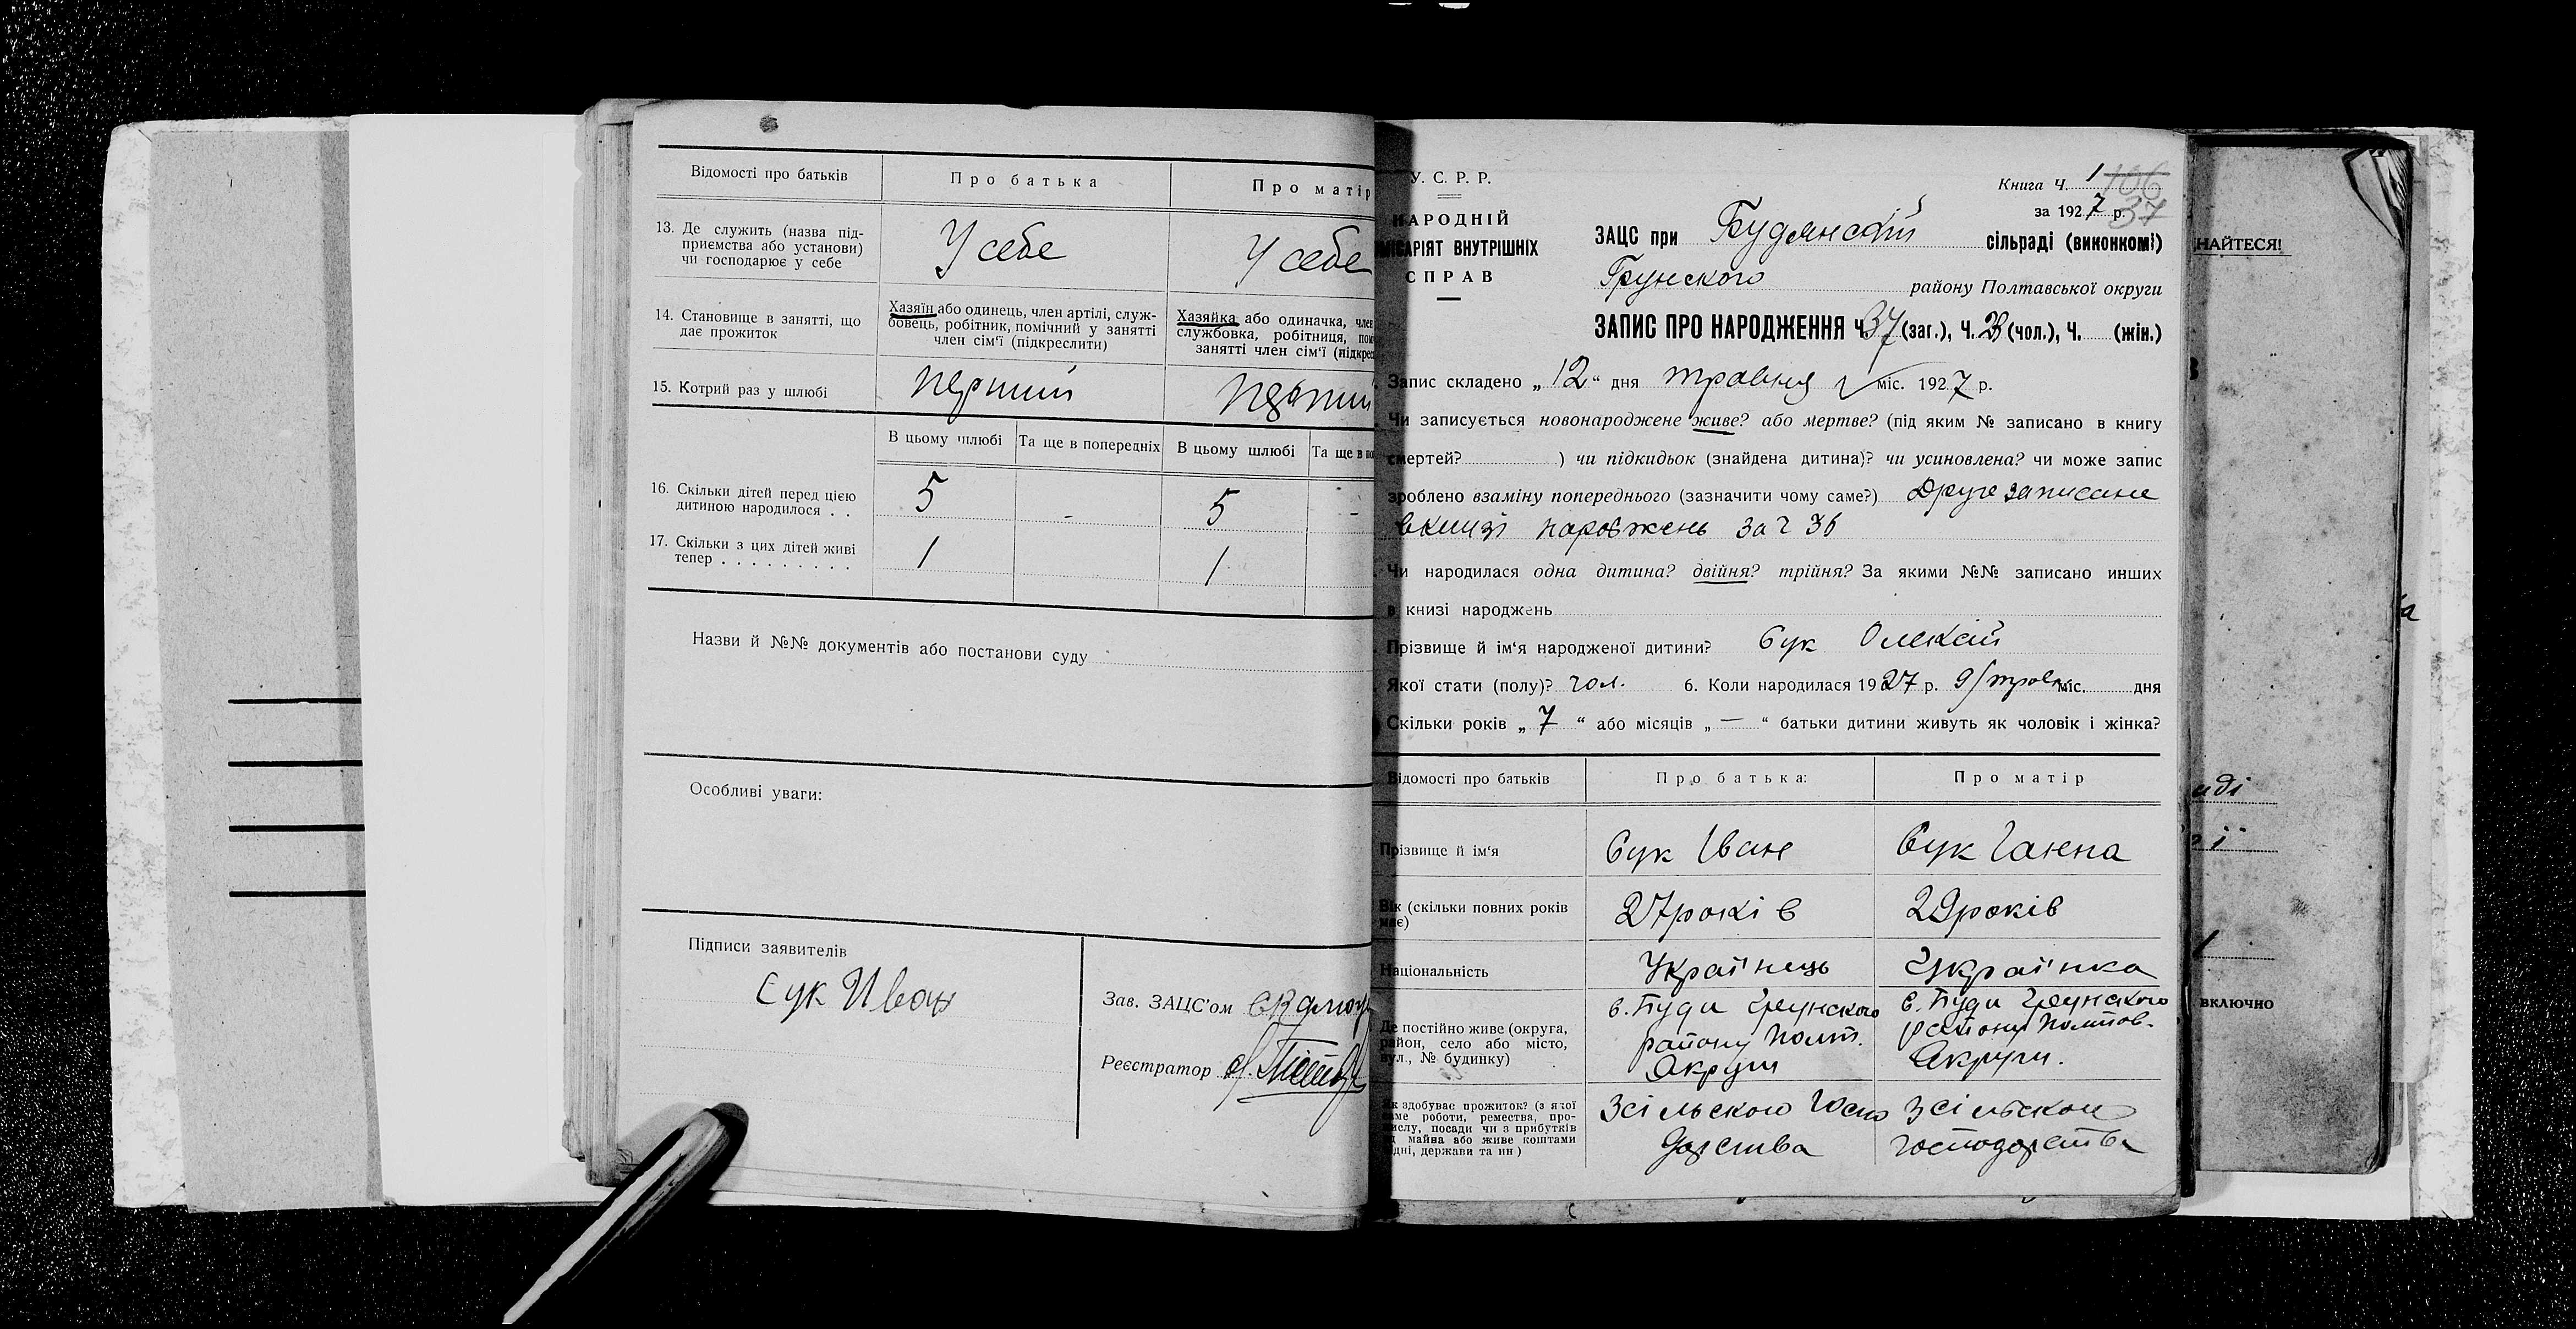 Відомості про батьків
Про батька
Про матір
13. Де служить (назва під-
приємства або установи)
чи господарює у себе
У себе
У себе
14. Становище в занятті, що
дає прожиток
Хазяїн або одинець, член артілі, служ-
бовець, робітник, помічний у занятті
член сім'ї (підкреслити)
Хазяйка або одиначка, член
службовка, робітниця, пом
занятті член сім'ї (підкрес
15. Котрий раз у шлюбі
перший
перший
В цьому шлюбі
Та ще в попередніх
В цьому шлюбі
Та ще в по
16. Скільки дітей перед цією
дитиною народилося . .
5
-
5
-
17. Скільки з цих дітей живі
тепер . . . . . . . . .
1
1
Назви й №№ документів або постанови суду
Особливі уваги:
Підписи заявителів
Сук Иван
Зав. ЗАЦС'ом
Реєстратор
У. С. Р. Р.
НАРОДНІЙ
МІСАРІЯТ ВНУТРІШНІХ
СПРАВ
Книга Ч. 1
за 1927 р.
106
37
ЗАЦС при Будянскій сільраді (виконкомі)
Грунского району Полтавської округи
ЗАПИС ПРО НАРОДЖЕННЯ Ч. 37 (заг.), Ч. 23 (чол.), Ч. (жін.)
Запис складено „12“ дня травня міс. 1927 р.
Чи записується новонароджене живе? або мертве? (під яким № записано в книгу
смертей? ) чи підкидьок (знайдена дитина)? чи усиновлена? чи може запис
зроблено взаміну попереднього (зазначити чому саме?) Друге записане
в книзі народжень за ч 36
Чи народилася одна дитина? двійня? трійня? За якими №№ записано инших
в книзі народжень
Прізвище й ім'я народженої дитини? Сук Олексій
Якої стати (полу)? чол. 6. Коли народилася 1927 р. 9/травн міс. дня
Скільки років „7“ або місяців „—“ батьки дитини живуть як чоловік і жінка?
Відомості про батьків
Про батька:
Про матір
Прізвище й ім'я
Сук Іван
Сук Ганна
Вік (скільки повних років
має)
27 років
29 років
Національність
Українець
Українка
Де постійно живе (округа,
район, село або місто,
вул., № будинку)
с. Буди Грунского
району Полт.
Округи
с. Буди Грунского
району Полтов.
Округи.
Як здобуває прожиток? (з якої
саме роботи, ремества, про-
мислу, посади чи з прибутків
від майна або живе коштами
рідні, держави та ин)
З сільского госпо
дарства
З сільского
господарства
НАЙТЕСЯ!
включно